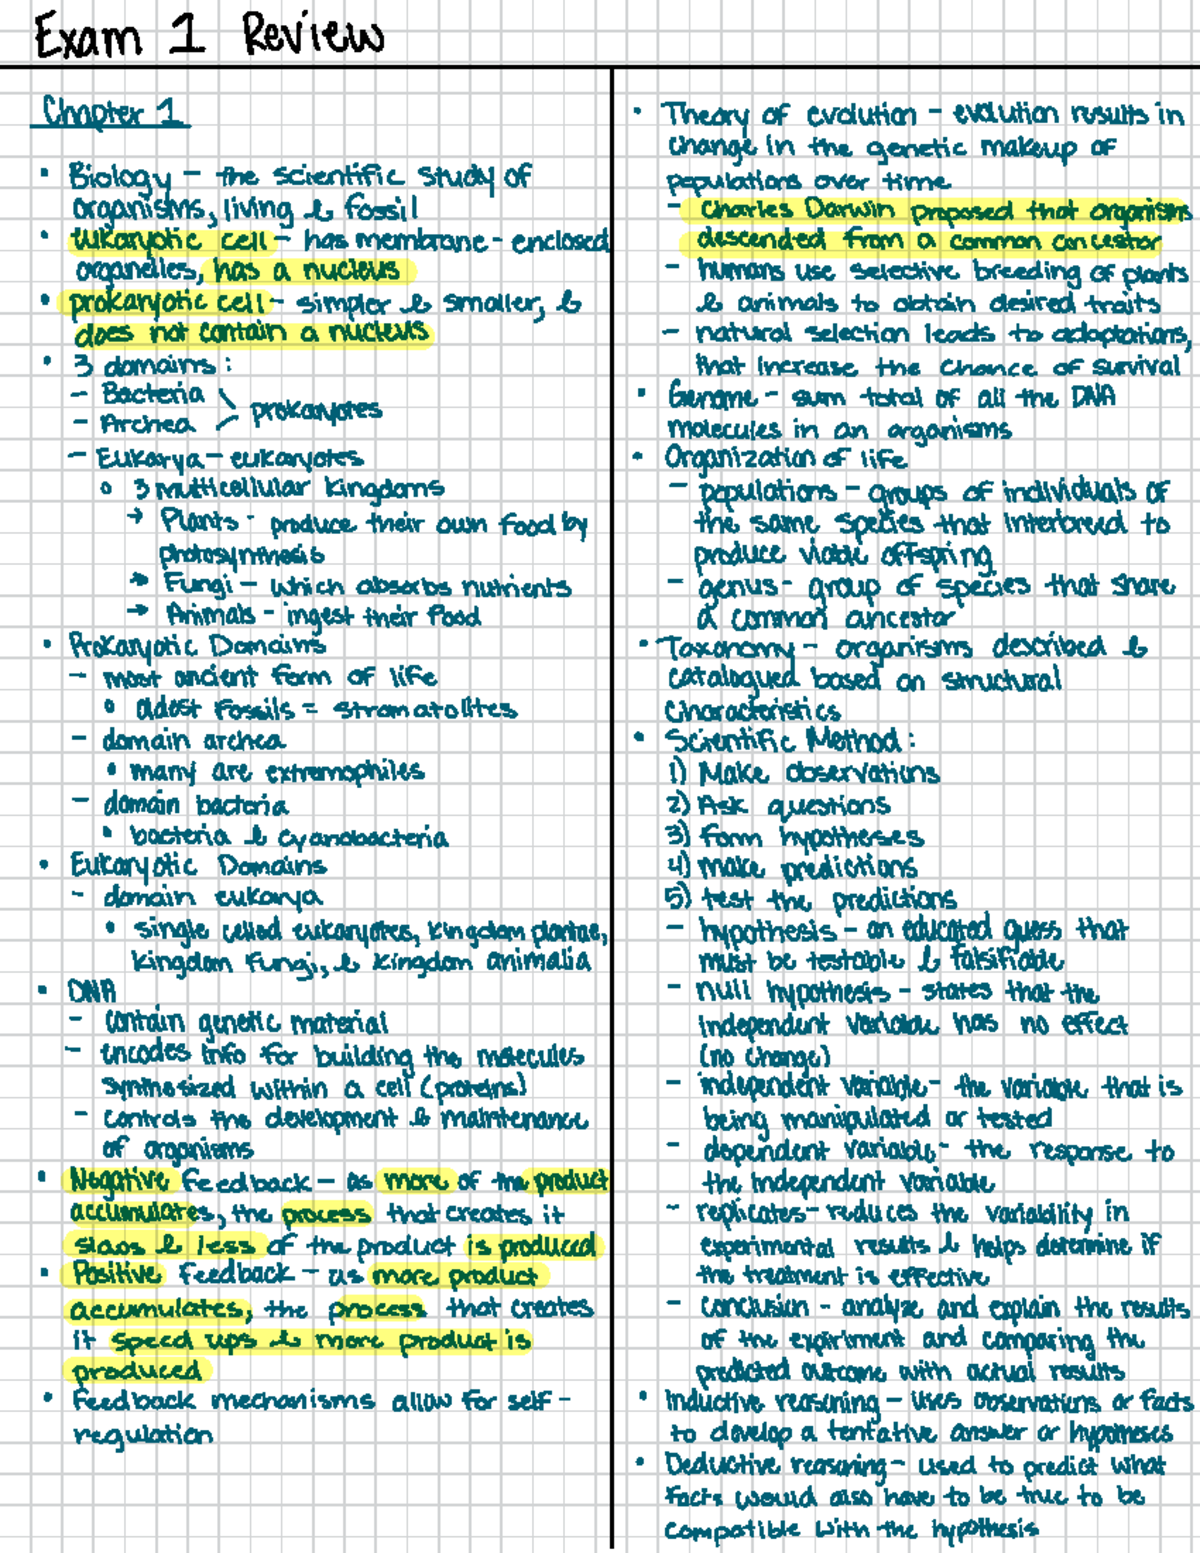 Exam 1 Review
Chapter 1
• Biology – the scientific study of
organisms, living & fossil
• eukaryotic cell – has membrane-enclosed
organelles, has a nucleus
• prokaryotic cell – simpler & smaller, &
does not contain a nucleus
• 3 domains:
– Bacteria
– Archea
prokaryotes
– Eukarya – eukaryotes
○ 3 multicellular kingdoms
→ Plants - produce their own food by
photosynthesis
→ Fungi – which absorbs nutrients
→ Animals – ingest their food
• Prokaryotic Domains
– most ancient form of life
○ oldest fossils = stromatolites
– domain archea
• many are extremophiles
– domain bacteria
• bacteria & cyanobacteria
• Eukaryotic Domains
– domain eukarya
• single celled eukaryotes, kingdom plantae,
kingdom fungi, & kingdom animalia
• DNA
– contain genetic material
– encodes info for building the molecules
synthesized within a cell (proteins)
– controls the development & maintenance
of organisms
• Negative feedback – as more of the product
accumulates, the process that creates it
slows & less of the product is produced
• Positive feedback – as more product
accumulates, the process that creates
it speed ups & more product is
produced
• Feedback mechanisms allow for self-
regulation
• Theory of evolution – evolution results in
change in the genetic makeup of
populations over time
– Charles Darwin proposed that organisms
descended from a common ancestor
– humans use selective breeding of plants
& animals to obtain desired traits
– natural selection leads to adaptations,
that increase the chance of survival
• Genome – sum total of all the DNA
molecules in an organisms
• Organization of life
– populations – groups of individuals of
the same species that interbreed to
produce viable offspring
– genus – group of species that share
a common ancestor
• Taxonomy – organisms described &
catalogued based on structural
characteristics
• Scientific Method:
1) Make observations
2) Ask questions
3) form hypotheses
4) make predictions
5) test the predictions
– hypothesis – an educated guess that
must be testable & falsifiable
– null hypothesis – states that the
independent variable has no effect
(no change)
– independent variable – the variable that is
being manipulated or tested
– dependent variable – the response to
the independent variable
– replicates – reduces the variability in
experimental results & helps determine if
the treatment is effective
– conclusion – analyze and explain the results
of the expiriment and comparing the
predicted outcome with actual results
• Inductive reasoning – uses observations or facts
to develop a tentative answer or hypotheses
• Deductive reasoning – used to predict what
facts would also have to be true to be
compatible with the hypothesis